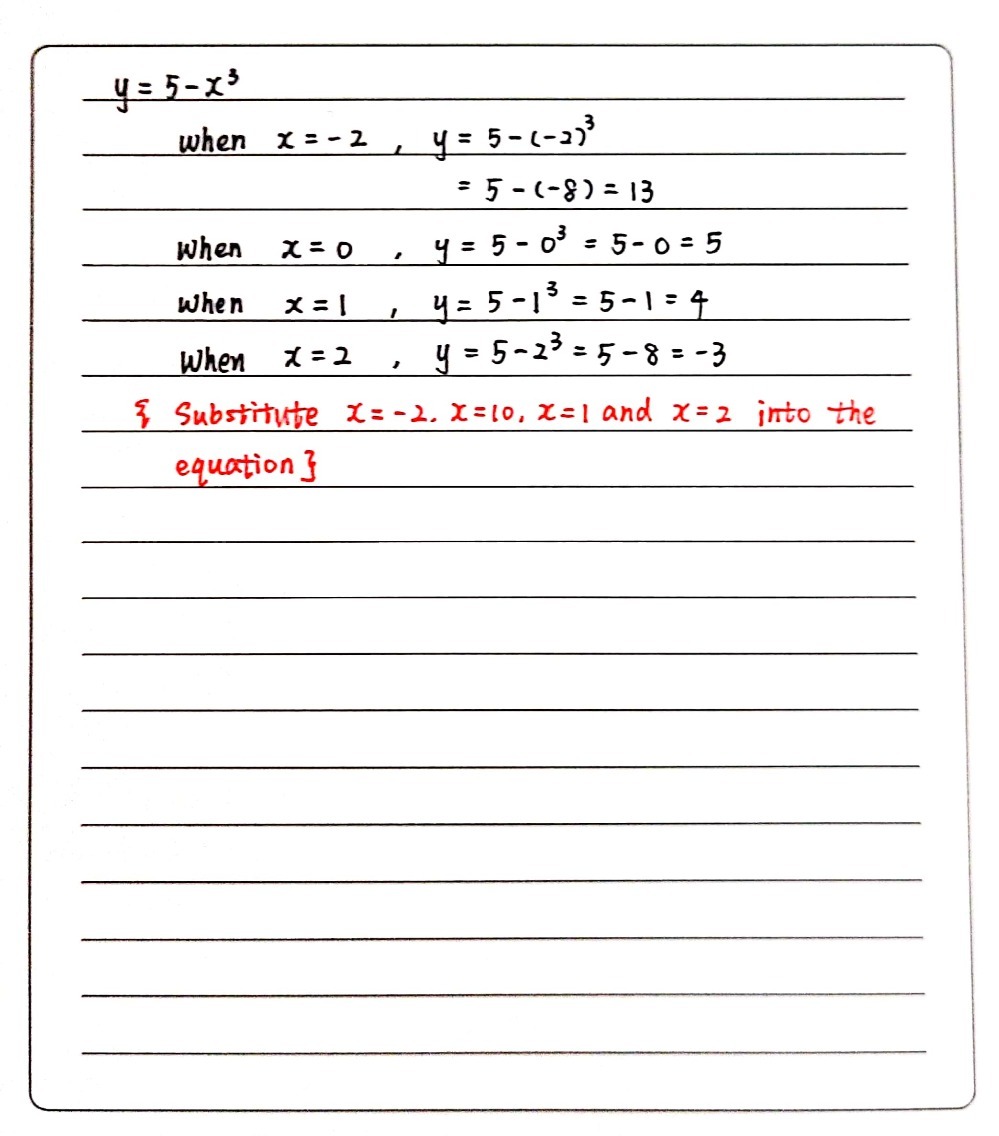 y = 5 - x³
when x = -2 , y = 5 - (-2)³
= 5 - (-8) = 13
when x = 0 , y = 5 - 0³ = 5 - 0 = 5
when x = 1 , y = 5 - 1³ = 5 - 1 = 4
when x = 2 , y = 5 - 2³ = 5 - 8 = -3
{ Substitute x = -2. x = 10, x = 1 and x = 2 into the
equation }